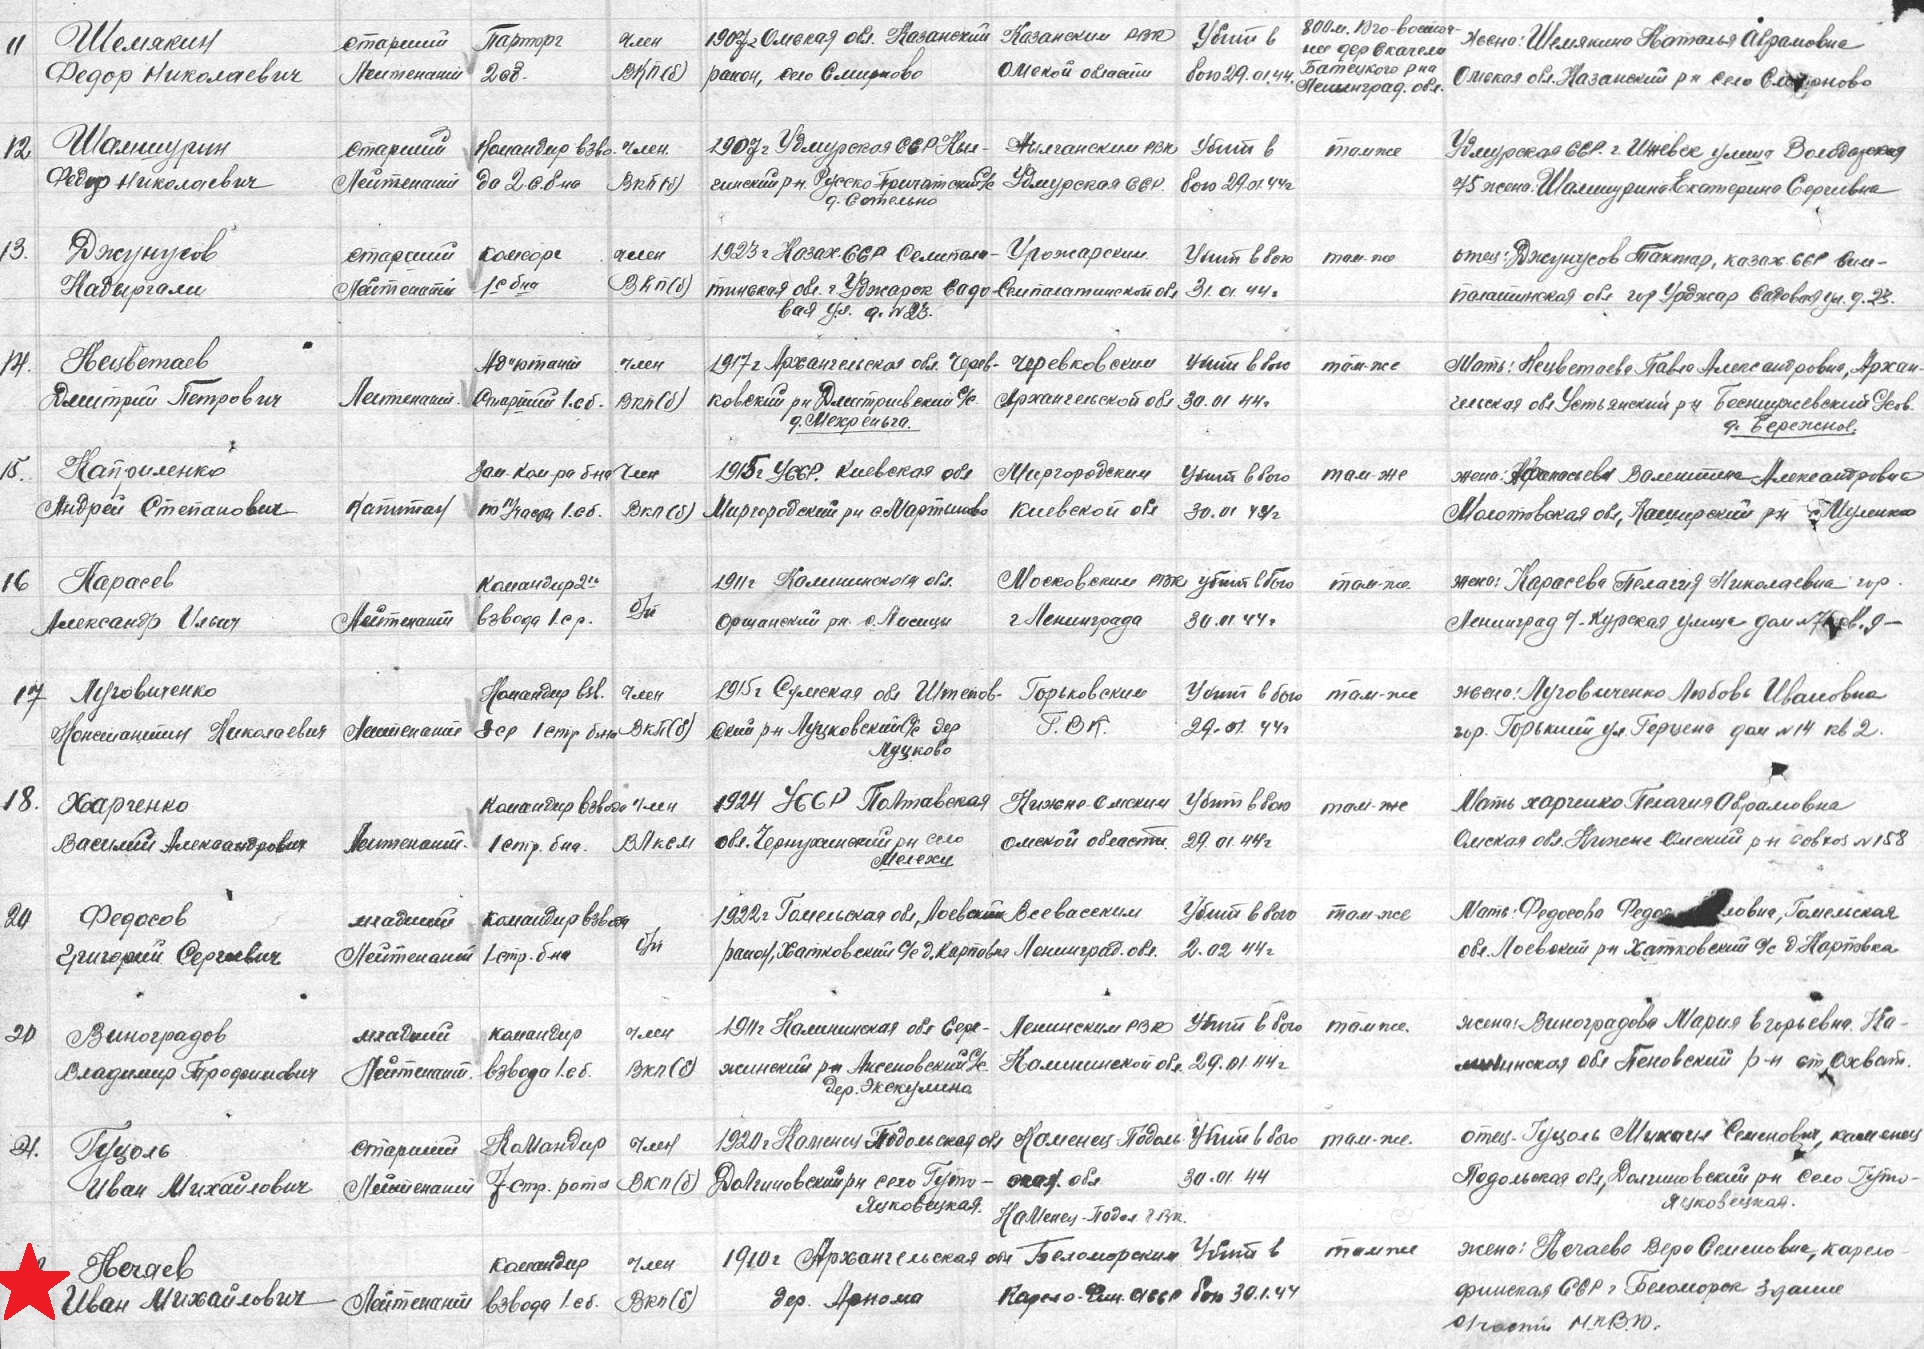 11 Шемякин старший Парторг член 1907г Омская обл. Казанский Казанским РВК Убит в 800м. Юго-восточ- жена: Шемякина Наталья Абрамовна
нее дер Скачели
Федор Николаевич Лейтенант 2 сб. ВКП(б) район, село Смирново Омской области бою 29.01.44. Батецкого р-на Омская обл. Казанский р-н село Смирново
Ленинград. обл.
12 Шамшурин старший Командир взво- член 1907г Удмурская ССР Ныл- Нылгинским РВК Убит в там же Удмурская ССР. г. Ижевск улица Володарская
Федор Николаевич Лейтенант да 2 с.б-на ВКП(б) гинский р-н. Русско- с/с Удмурская ССР. бою 29.01.44г 75 жена: Шамшурина Екатерина Сергеевна
д. Сотельно
13. Джунусов старший комсорг член 1923г Казах. ССР Семипала- Урожарским Убит в бою там-же отец: Джунусов Тактар, казах. ССР Сем-
Кадыргали Лейтенант 1 с бна ВКП(б) тинская обл. г Уджарск Садо- Семипалатинской обл 31.01.44г. палатинская обл гор Урджар Садовая ул. д. 23.
вая ул. д. №23.
14. Нецветаев Адъютант член 1917г Архангельская обл. Черев- Черевковским убит в бою там-же Мать: Нецветаева Павла Александровна, Архан-
Дмитрий Петрович Лейтенант. Старший 1.сб. ВКП(б) ковский р-н Дмитриевский с/с. Архангельской обл 30.01 44г. гельская обл Устьянский р-н с/сов.
д. Мехреньга. д. Бережное.
15. Каприленко Зам. Ком-ра бна член 1915г УССР. Киевская обл Миргородским Убит в бою там-же жена: Афанасьева Валентина Александровна
Андрей Степанович Капитан по части 1.сб. ВКП(б) Миргородский р-н с Мартыново Киевской обл 30.01 44г Молотовская обл, р-н с
16 Карасев Командир 2го 1911г Калининская обл. Московским РВК убит в бою там-же. жена: Карасева Пелагия Николаевна гор.
Александр Ильич Лейтенант взвода 1.ср. б/п Оршанский р-н. д. Лисицы г Ленинграда 30.01 44г Ленинград Курская улица дом кв. 9
17 Луговиченко Командир взв. член 1915г Сумская обл Штепов- Горьковским Убит в бою там-же жена: Луговиченко Любовь Ивановна
Константин Николаевич Лейтенант ср 1 стр бна ВКП(б) ский р-н Луцковский с/с дер Г.В.К. 29.01.44г гор. Горький ул. Герцена дом №14 кв 2.
Луцково
18. Харченко Командир взвода член 1924 УССР Полтавская Нижне-Омским Убит в бою там-же Мать Харченко Пелагия Абрамовна
Василий Александрович Лейтенант. 1 стр. бна. ВЛКСМ обл. Чернухинский р-н село Омской области. 29.01.44г Омская обл. Нижне Омский р-н совхоз №158
Мелехи
20 Федосов младший командир взвода 1922г Гомельская обл, Лоевский Всеваеским Убит в бою там-же Мать: Федосова Гомельская
Григорий Сергеевич Лейтенант 1.стр. бна б/п район, Хатковский с/с д. Карповка Ленинград. обл. 2.02 44г обл. Лоевский р-н Хатковский с/с д Карповка
20 Виноградов младший командир член 1911г Калининская обл Сере- Ленинским РВК Убит в бою там же. жена: Виноградова Мария Егорьевна. Ка-
Владимир Трофимович Лейтенант. взвода 1.сб. ВКП(б) жинский р-н Аксеновский с/с. Калининской обл. 29.01.44г лининская обл Пеновский р-н ст. Охват.
дер. Экскулино
21. Гуцоль старший Командир член 1920г Каменец Подольская обл Каменец-Подоль- Убит в бою там-же. отец- Гуцоль Михаил Семенович, каменец
Иван Михайлович Лейтенант стр. рота ВКП(б) Долгиновский р-н село Гуто- ская. обл 30.01.44 Подольская обл, Долгиновский р-н село Гуто-
Яцковецкая. Каменец-Подол. ГВК. Яцковецкая.
Нечаев командир член 1910г Архангельская обл Беломорским Убит в там же жена: Нечаева Вера Семеновна, карело-
Иван Михайлович Лейтенант взвода 1.сб. ВКП(б) дер. Арнома Карело-Фин. АССР бою 30.1.44 финская ССР г Беломорск Здание
части